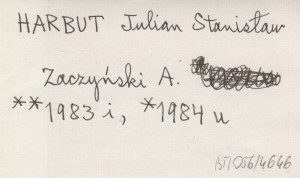 HARBUT Julian Stanisław
Zaczyński A.
**1983 i, *1984 u